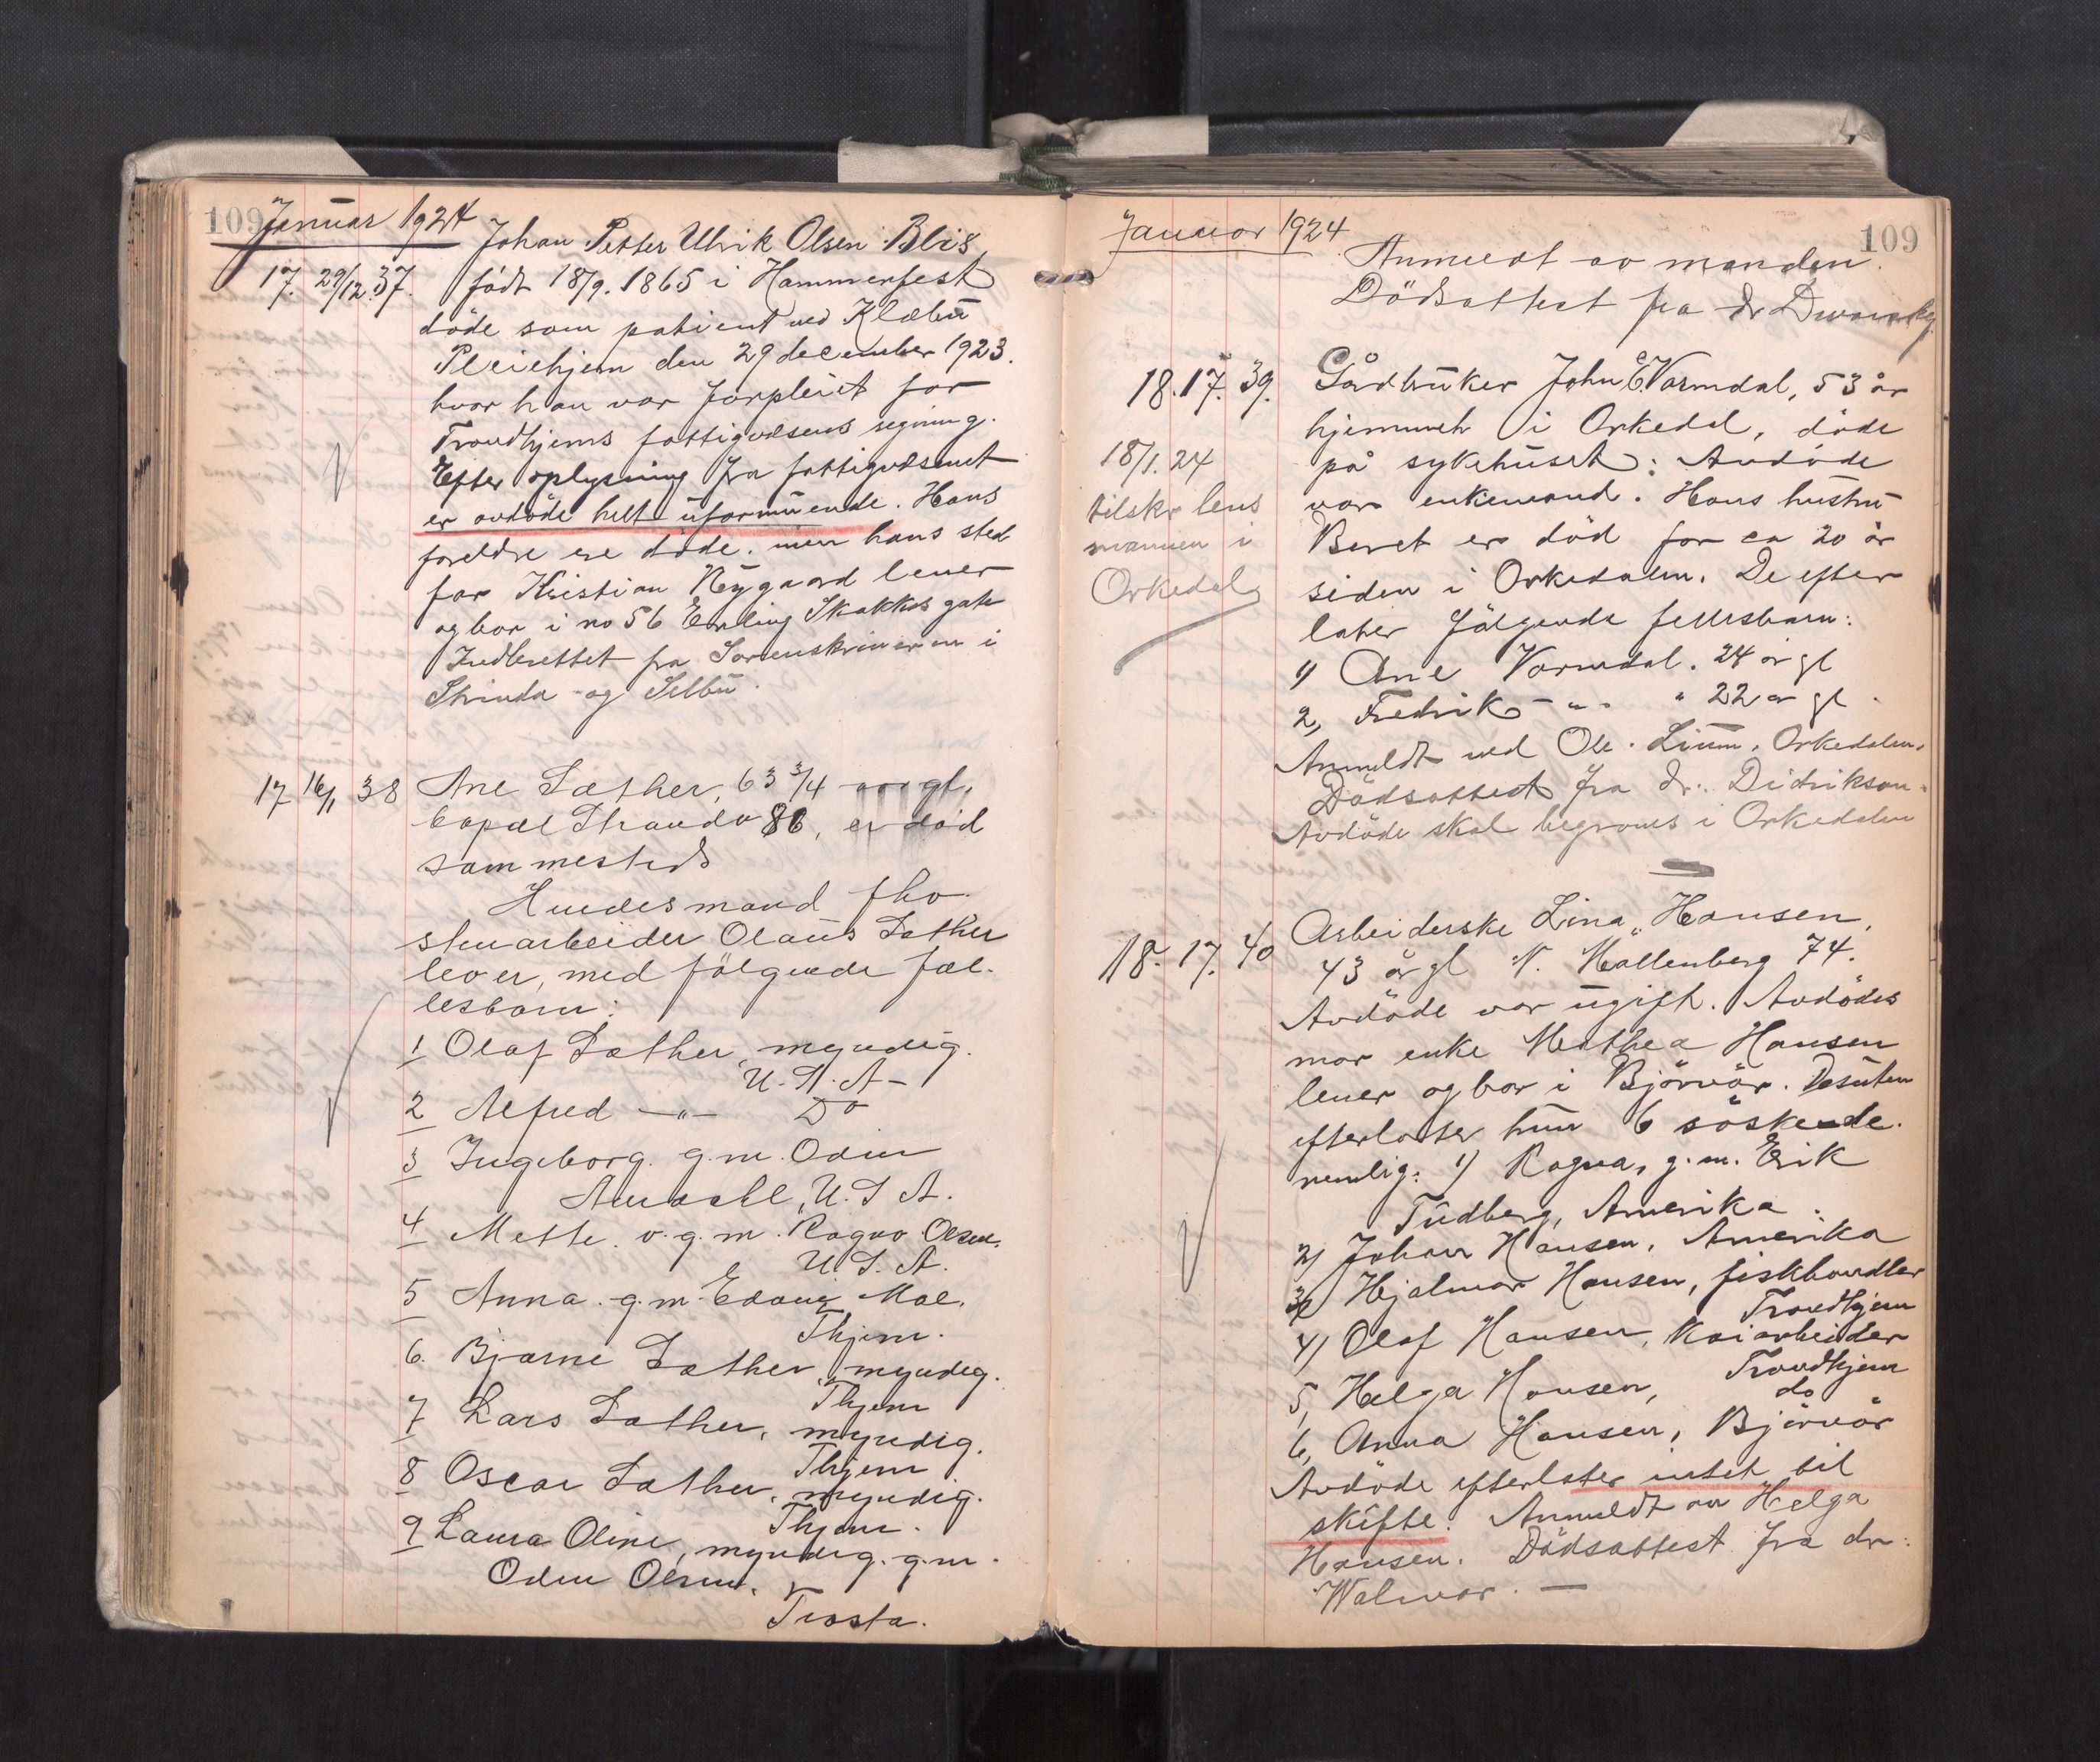 109
Januar 1924
Johan Petter Ulrik Olsen Blis
17. 29/12. 37. född 18/9. 1865 i Hammerfest
döde som patient ved Klæbu
Pleiehjem den 29 december 1923.
hvor han var forpleiet for
Trondhjems fattigvæsens regning.
Efter oplysning fra fattigvæsenet
er avdöde helt uformuende. Hans
foreldre ere döde. men hans sted
far Kristian Nygaard lever
og bor i no 56 Erling Skakkes gate
Indberettet fra Sorenskriveren i
Strinda og Selbu.
17 16/1 38 Ane Sæther, 63 3/4 aar gl.
bopæl Stranda 86, er död
sammesteds
Huedesmand fho.
stenarbeider Olaus Sæther
lever, med fölgende fæl-
lesbarn:
1 Olaf Sæther, myndig.
U.S.A-
2 Alfred —"— Do
3 Ingeborg. g.m. Odin
U.S.A.
4 Mette. v. g. m. Ragnv. Olsen.
U.S.A.
5 Anna. g.m. Edvin Moe.
Thjem.
6. Bjarne Sæther, myndig.
Thjem
7 Lars Sæther, myndig.
Thjem
8 Oscar Sæther, myndig.
Thjem.
9 Laura Oline, myndig. g.m.
Odin Olsen.
Trosta.
Januar 1924
109
Anmeldt av manden.
Dödsattest fra dr
18. 17. 39. Gårdbruker John E. Varmdal, 53 år
hjemmeh i Orkedal, döde
på sykehuset: Avdöde
18/1. 24
tilskr lens
mannen i
Orkedal
var enkemand. Hans hustru
Beret er död for ca 20 år
siden i Orkedalen. De efter
later fölgende fellesbarn:
1) Ane Varmdal. 24 år gl
2, Fredrik - " - " 22 år gl.
Anmeldt ved Ole. Lium, Orkedalen.
Dödsattest fra dr. Didrikson.
Avdöde skal begraves i Orkedalen
18. 17. 40 Arbeiderske Lina Hansen,
43 år gl N. Møllenberg 74.
Avdöde var ugift. Avdödes
mor enke Mathea Hansen
lever og bor i Björnör. Desuten
efterlater hun 6 söskende.
nemlig: 1) Ragna, g.m. Erik
Tudberg, Amerika.
2) Johan Hansen, Amerika
3) Hjalmar Hansen, fiskhandler
Trondhjem
4) Olaf Hansen, Kaiarbeider
Trondhjem
5, Helga Hansen, do
6, Anna Hansen, Björnör
Avdöde efterlater intet til
skifte. Anmeldt av Helga
Hansen. Dödsattest fra dr.
Walmar. —